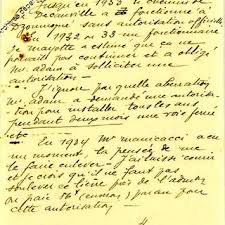 Jusqu'en 1932 le chemin
Decauville a fonctionné à
Dzoumogné sans autorisation officielle
En 1932 ou 33 un fonctionnaire
de mayotte a estimé que ça ne
pouvait pas continuer et a obligé
Mr. adam à solliciter une
autorisation -
J'ignore par quelle aberration
Mr. adam a demandé une autorisa-
tion pour installer tous les ans
pendant deux mois une voie ferrée
etc
En 1934 Mr manicacci a eu
un moment la pensée de me
faire enlever - J'ai laissé courir
et je crois qu'il ne faut pas
soulever ce lièvre près de l'admon
on paie Frs (environ) par an pour
cette autorisation -